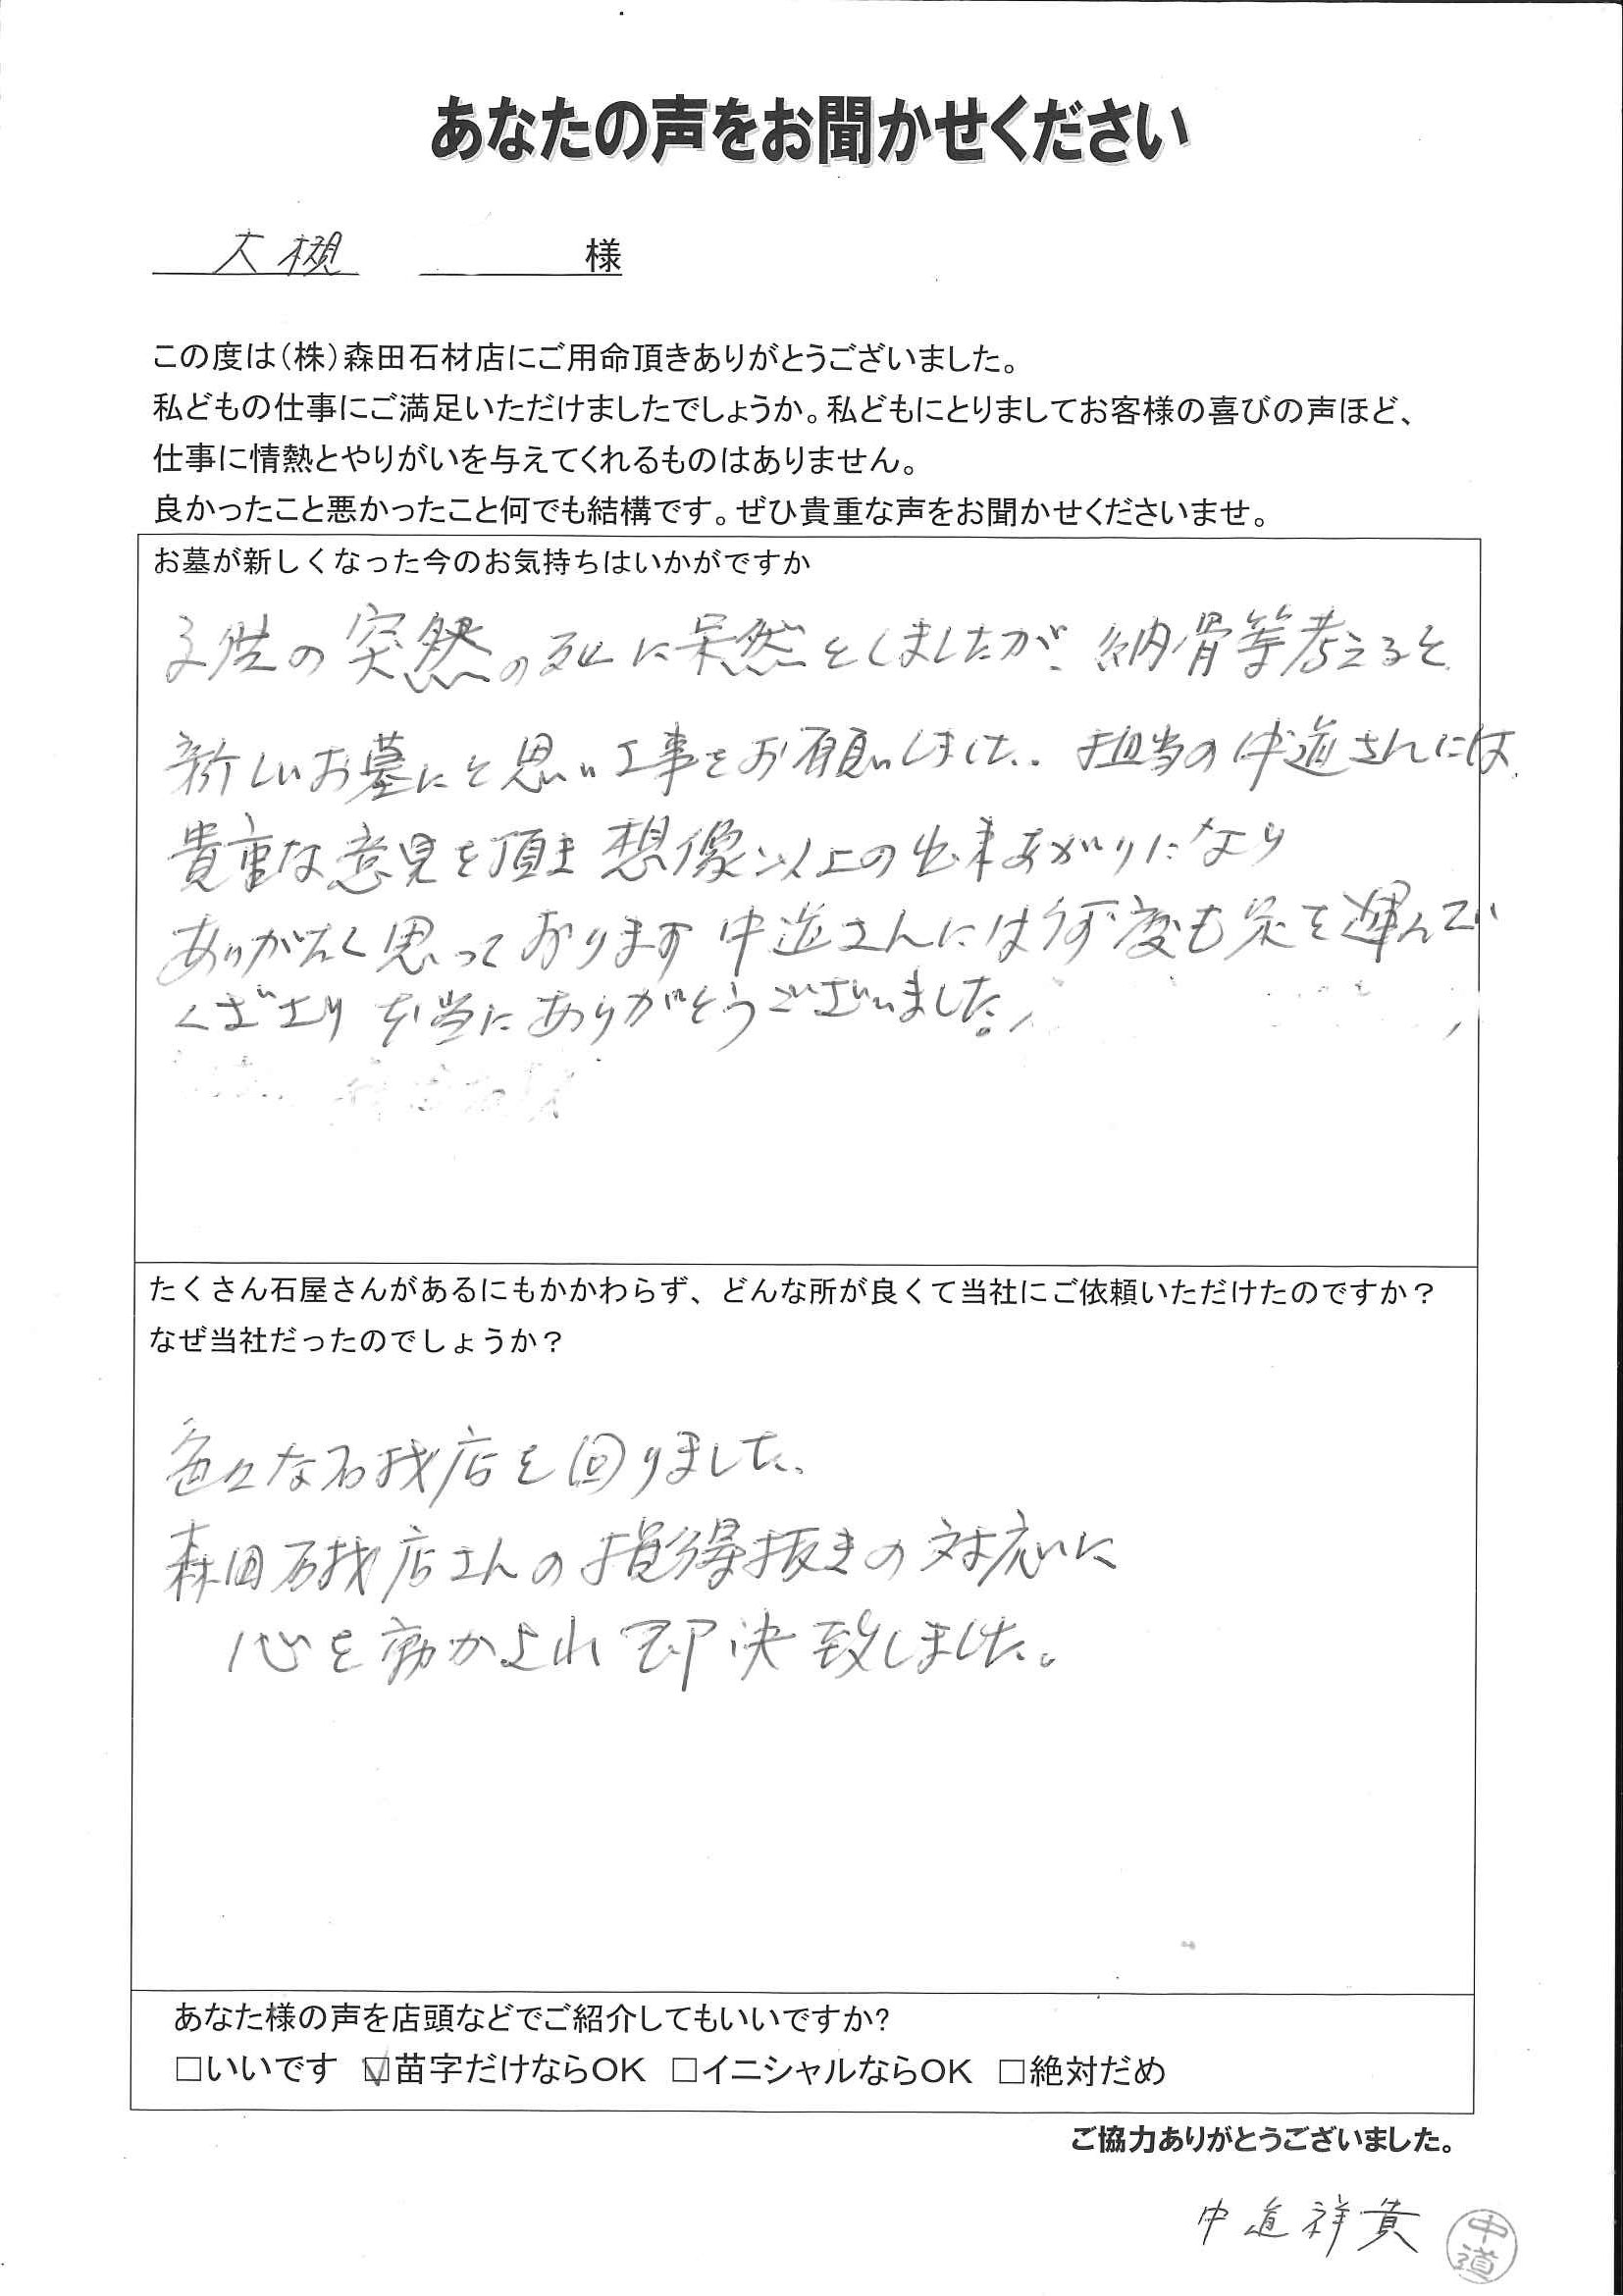 あなたの声をお聞かせください
大槻 様
この度は(株)森田石材店にご用命頂きありがとうございました。
私どもの仕事にご満足いただけましたでしょうか。私どもにとりましてお客様の喜びの声ほど、
仕事に情熱とやりがいを与えてくれるものはありません。
良かったこと悪かったこと何でも結構です。ぜひ貴重な声をお聞かせくださいませ。
お墓が新しくなった今のお気持ちはいかがですか
子供の突然の死に呆然としましたが、納骨等考えると
新しいお墓にと思い工事をお願いしました。担当の中道さんには
貴重な意見を頂き想像以上の出来あがりになり
ありがたく思っております中道さんには何度も足を運んで
くださり本当にありがとうございました。
たくさん石屋さんがあるにもかかわらず、どんな所が良くて当社にご依頼いただけたのですか？
なぜ当社だったのでしょうか？
色々な石材店を回りました。
森田石材店さんの損得抜きの対応に
心を動かされ即決致しました。
あなた様の声を店頭などでご紹介してもいいですか?
□いいです ☑苗字だけならOK □イニシャルならOK □絶対だめ
ご協力ありがとうございました。
中道祥貴 中道